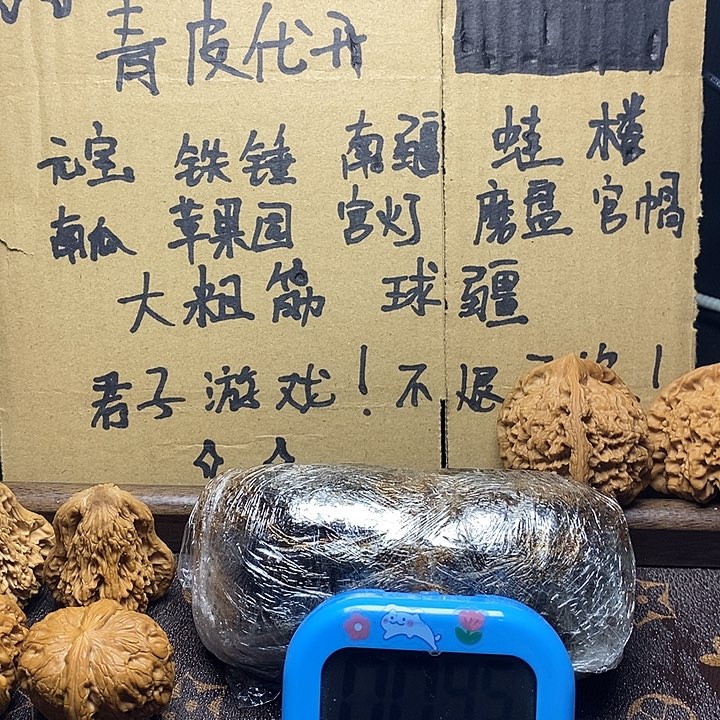 青皮代开
元宝 铁锤 南疆 蛙 楼
南瓜 苹果园 宫灯 磨盘 官帽
大粗筋 球疆
君子游戏！不退